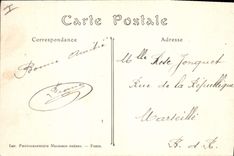 Carte Postale
Correspondance
Adresse
Bonne Amitié
Mlle Rose Jonquet
Rue de la République
Marseille
B. d R.
Imp. Photographique Neurdein frères. — Paris.